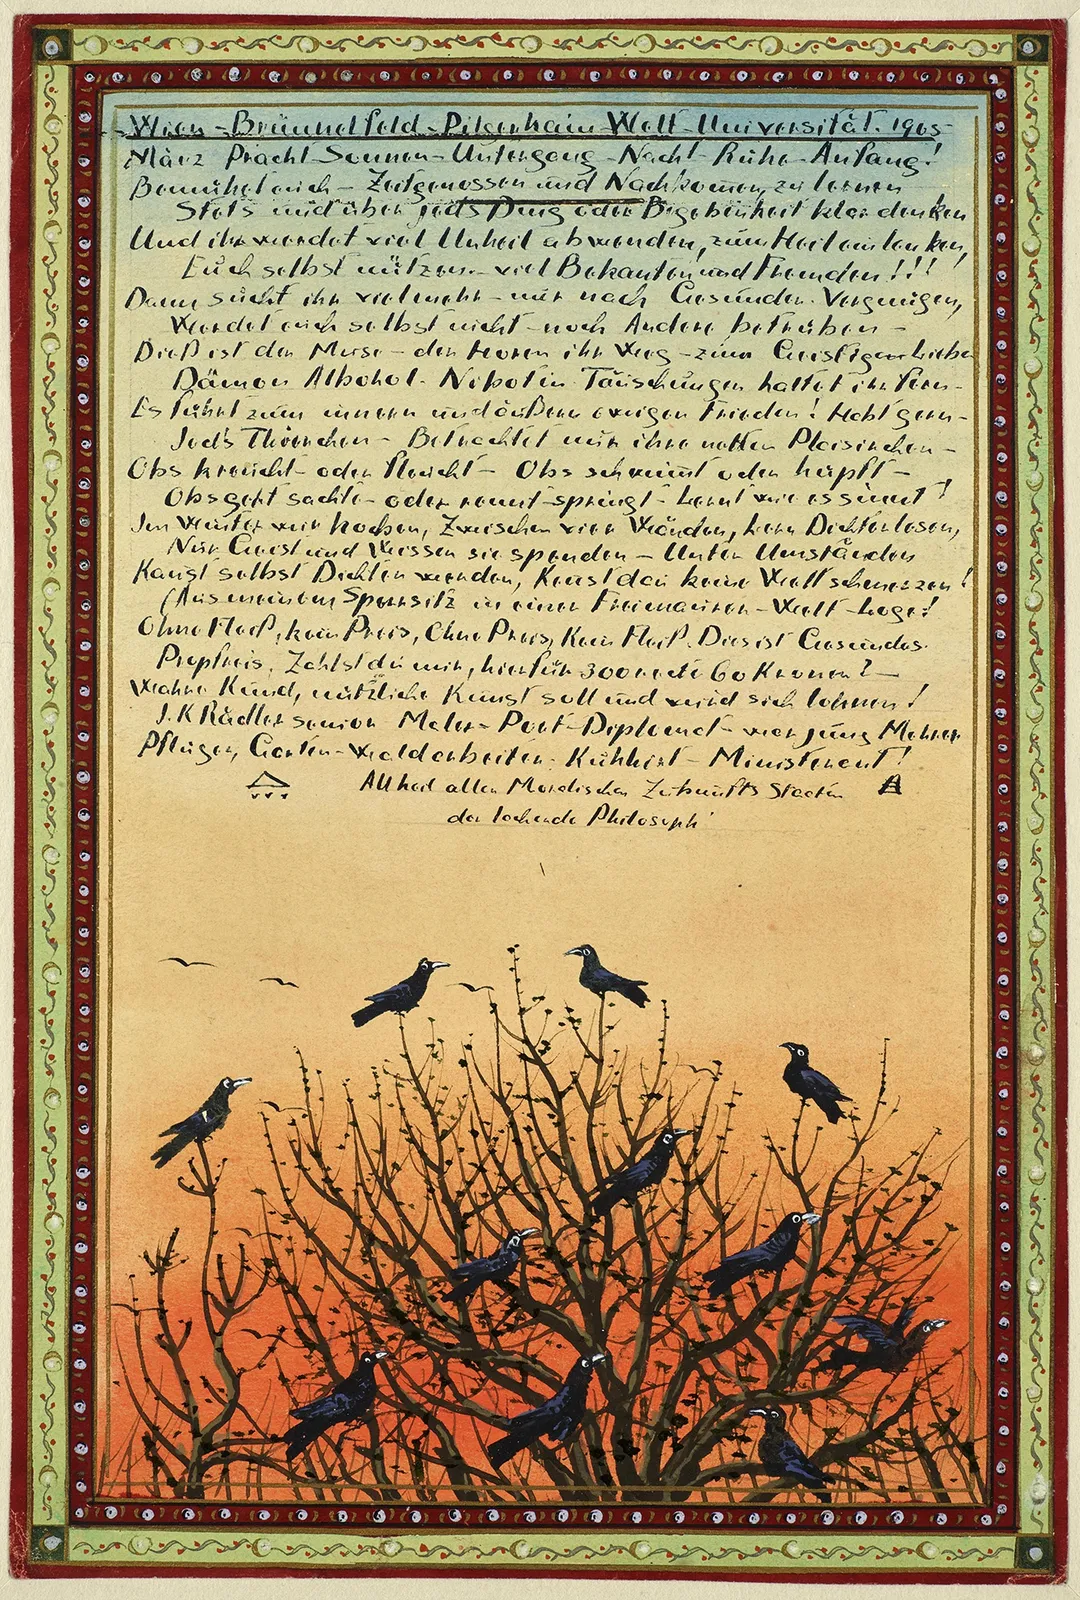 Wien - Brünndlfeld - Pilgerhain Welt-Universität. 1905-
März Pracht-Sonnen-Untergang - Nacht-Ruhe-Anfang!
Bemühet euch - Zeitgenossen und Nachkomen, zu lernen
Stets und über jed's Ding oder Begebenheit klar denken
Und ihr werdet viel Unheil abwenden, zum Heil einlenken,
Euch selbst nützen - viel Bekanten und Fremden!!!
Dann sucht ihr vielmehr - nur nach Gesunden Vergnügen,
Werdet euch selbst nicht - noch Andere betrüben -
Dieß ist der Muse - der Horen ihr Weg - zum Geistigen Liebe
Dämon Alkohol - Nikotin Täuschungen haltet ihr fern -
Es führt zum innern und äußern ewigen Frieden! Habt gern -
Jed's Thierchen - Betrachtet nur ihre netten Plaisirchen -
Obs kreucht - oder fleucht - Obs schwimt oder hüpft -
Obs geht sachte - oder rennt - springt - Lernt wie es sinnt!
Im Winter wir hocken, Zwischen vier Wänden, kann Dichterlesen,
Nur Geist und Wissen sie spenden - Unter Umständen
Kanst selbst Dichter werden, Kenst dan keine Welt schmerzen!
(Aus meinem Sperrsitz in einer Freimaurer-Welt-Loge!
Ohne Fleiß, kein Preis, Ohne Preis, Kein Fleiß. Dies ist Gesundes
Zahlst du mir, hierfür 300 60 Kronen? -
Wahre Kund, nützliche Kunst soll und wird sich lohnen!
J. K Rädler senior Maler - Poet - Diplomat - vier jung Mohren
Pflüger, Garten-waldarbeiter - Kühhirt - Ministerent!
All heil allen Zukunfts Staaten
der lachende Philosoph